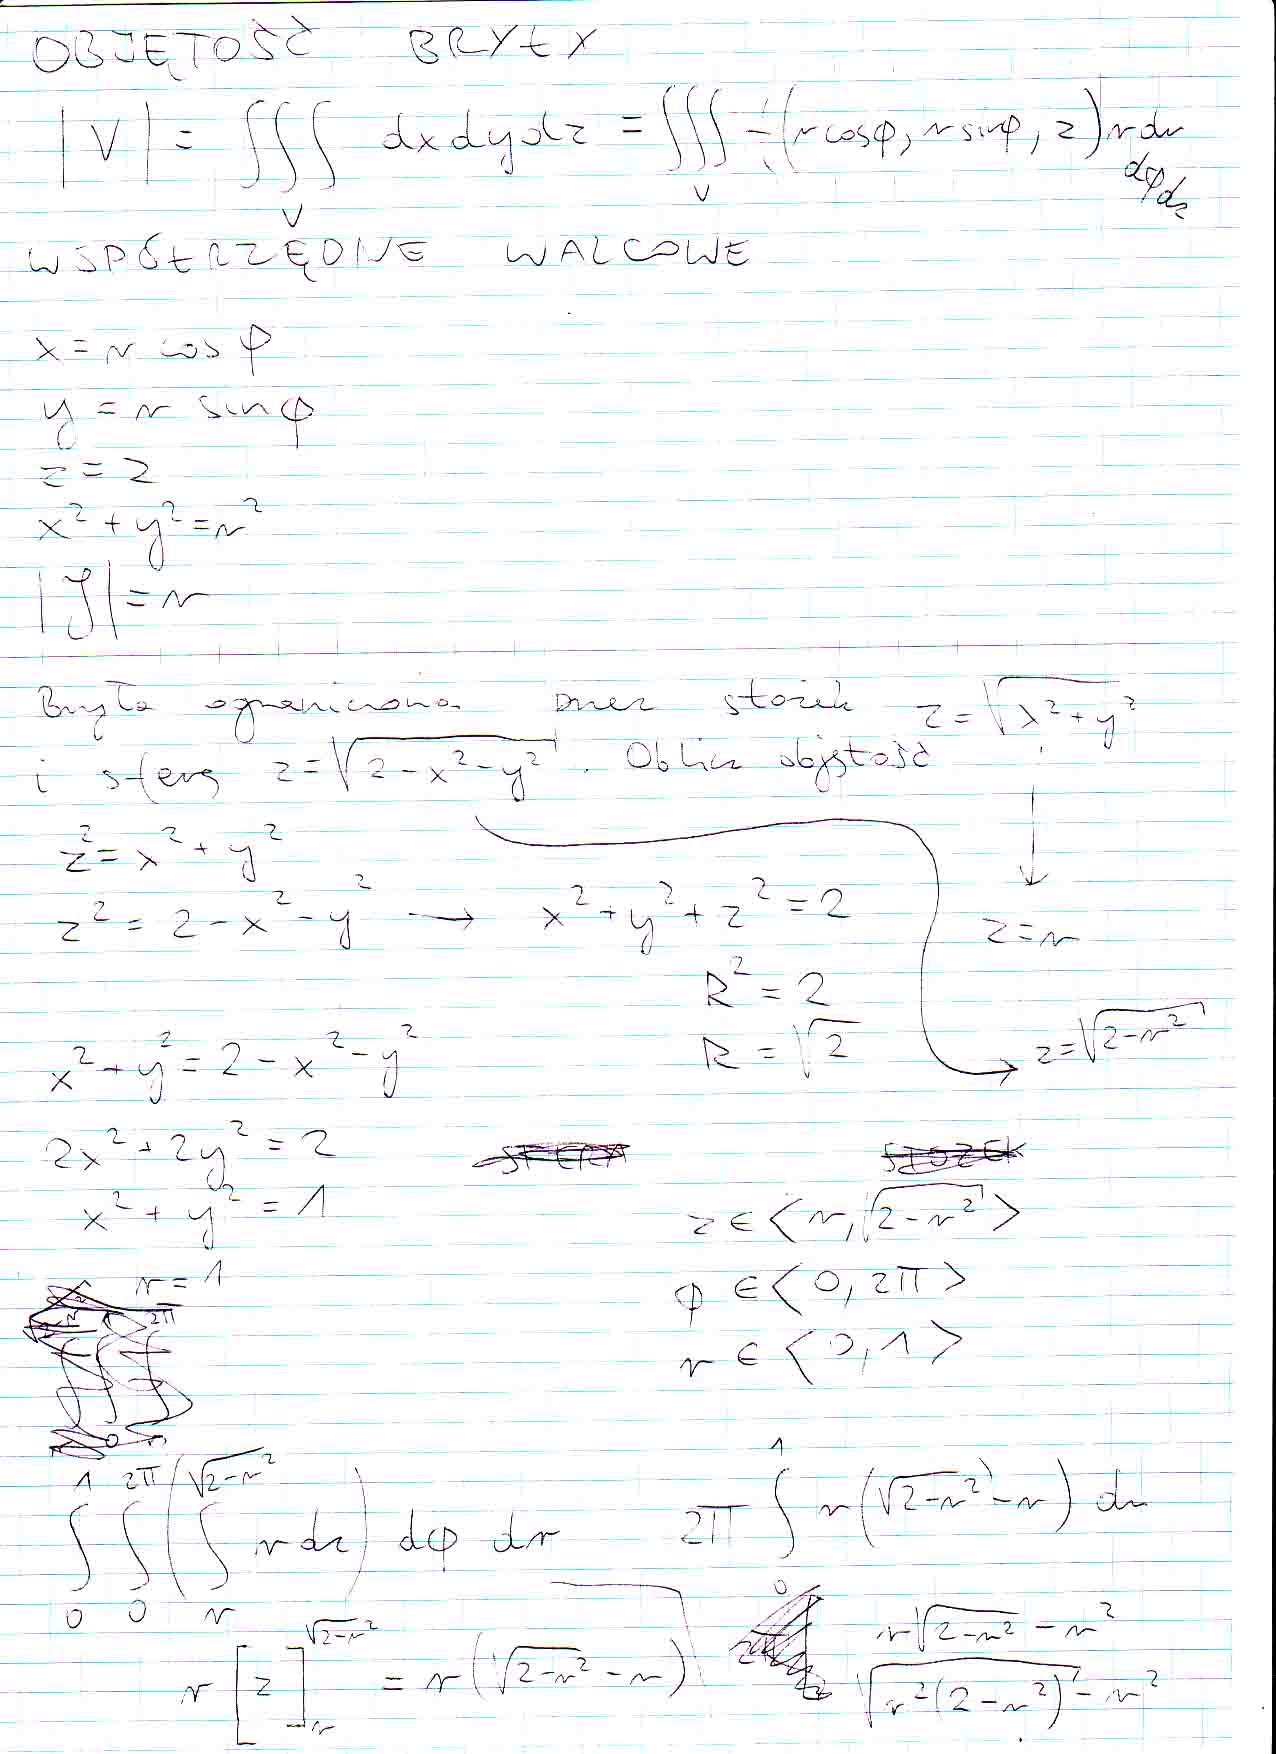 OBJĘTOŚĆ BRYŁY
|V| = ∭_V dxdydz = ∭_V f(r cosφ, r sinφ, z) r dr dφ dz
WSPÓŁRZĘDNE WALCOWE
x = r cos φ
y = r sin φ
z = z
x² + y² = r²
|J| = r
Bryła ograniczona przez stożek z = √(x² + y²)
i sferę z = √(2 - x² - y²). Oblicz objętość
z² = x² + y²
z² = 2 - x² - y² → x² + y² + z² = 2
z = r
R² = 2
R = √2
z = √(2 - r²)
x² + y² = 2 - x² - y²
2x² + 2y² = 2
x² + y² = 1
r = 1
z ∈ <r, √(2 - r²)>
φ ∈ <0, 2π>
r ∈ <0, 1>
∫₀¹ ∫₀^2π (∫_r^√(2-r²) r dz) dφ dr
2π ∫₀¹ r(√(2-r²) - r) dr
r [z]_r^√(2-r²) = r(√(2-r²) - r)
r√(2-r²) - r²
√(r²(2-r²)) - r²